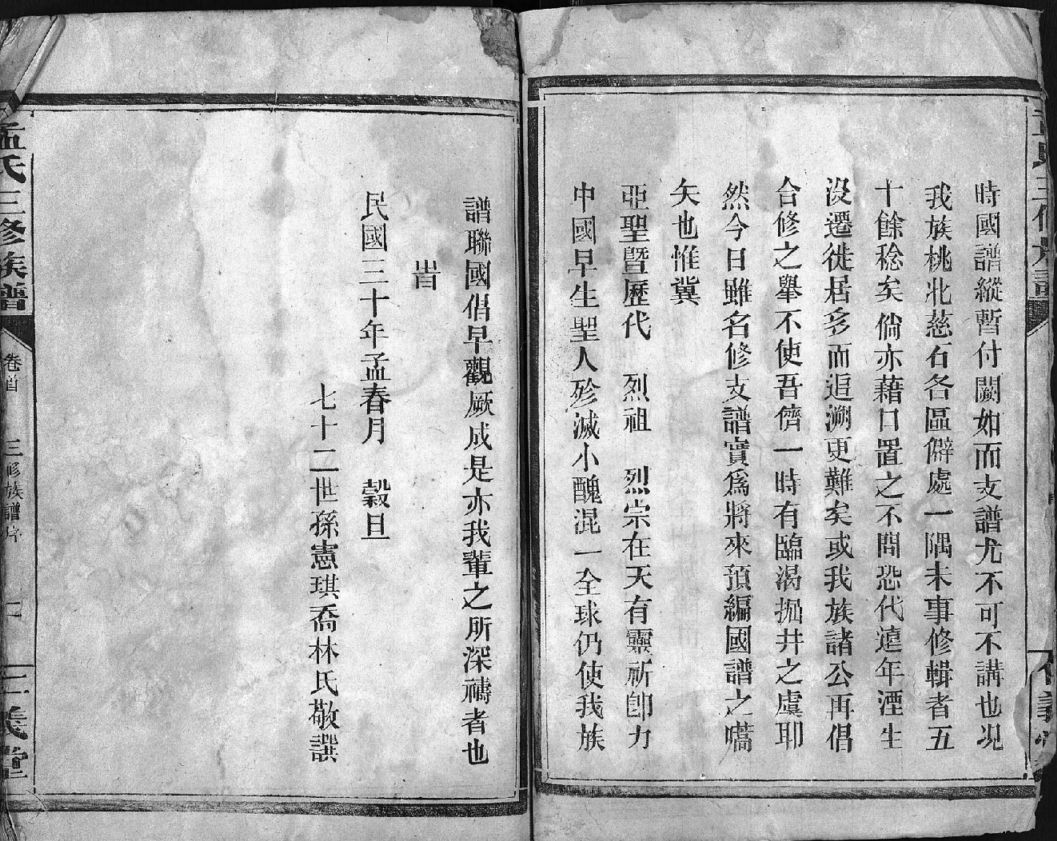 時國譜縱暫付闕如而支譜尤不可不講也况
我族桃北慈石各區僻處一隅未事修輯者五
十餘稔矣倘亦藉口置之不問恐代遠年湮生
沒遷徙居多而追溯更難矣或我族諸公再倡
合修之舉不使吾儕一時有臨渴掘井之虞耶
然今日雖名修支譜實爲將來預編國譜之嚆
矢也惟冀
亞聖暨歷代　烈祖　烈宗在天有靈祈卽力
中國早生聖人殄滅小醜混一全球仍使我族
譜聯國倡早觀厥成是亦我輩之所深禱者也
岿
民國三十年孟春月　穀旦
七十二世孫憲琪喬林氏敬譔
孟氏三修族譜
卷首
三修族譜序
二
三義堂